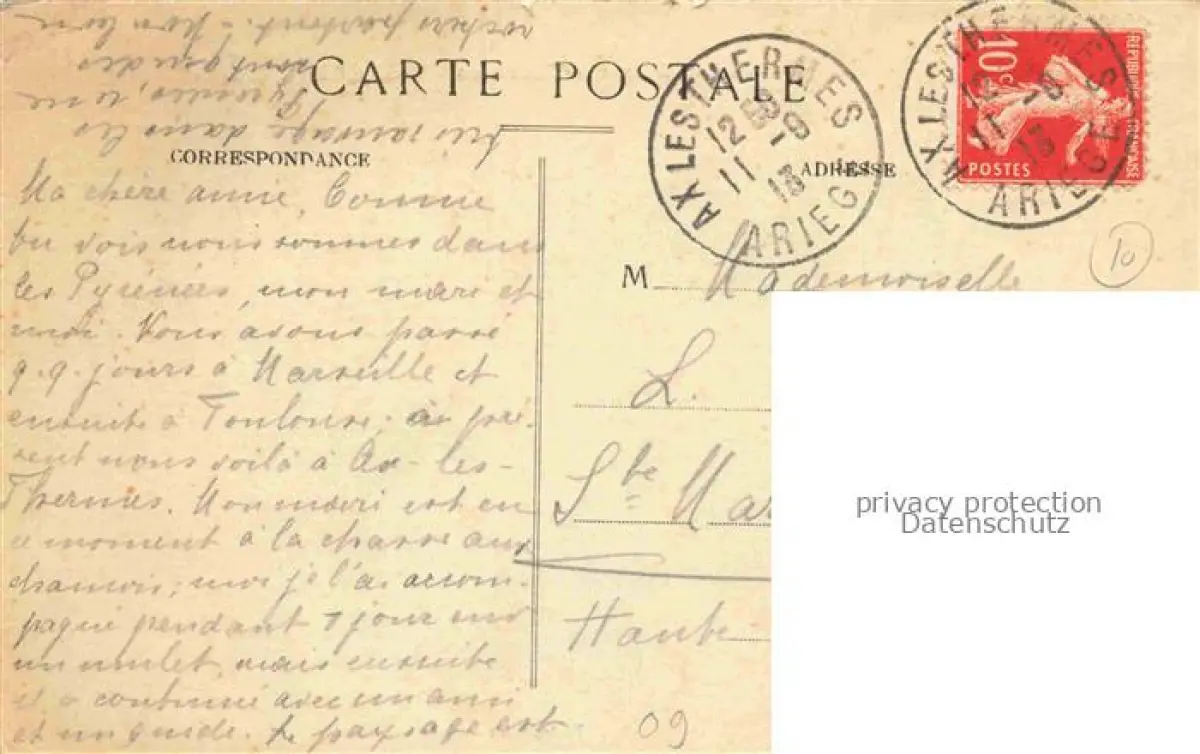 CARTE POSTALE
CORRESPONDANCE
Ma chère amie, Comme
tu vois nous sommes dans
les Pyrénées, mon mari et
moi. Nous avons passé
q.q. jours à Marseille et
ensuite à Toulouse; à pré-
sent nous voilà à Ax-les-
Thermes. Mon mari est en
ce moment à la chasse aux
chamois; moi je l'ai accom-
pagné pendant 1 jour sur
un mulet, mais ensuite
il a continué avec un ami
et un guide. Le paysage est
très sauvage dans les
Pyrénées, une
rochers partout. - Mon
AX LES THERMES
12 -9
11 13
ARIEGE
AX LES THERMES
12 -9
11 13
ARIEGE
REPUBLIQUE FRANÇAISE
10c
POSTES
10
ADRESSE
M Mademoiselle
L.
Ste Mar
Haute
09
privacy protection
Datenschutz